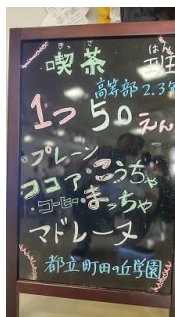 きっさ はん
喫茶 班
高等部2.3年
1つ50えん
プレーン
ココア・こうちゃ
コーヒー・まっちゃ
マドレーヌ
都立町田の丘学園